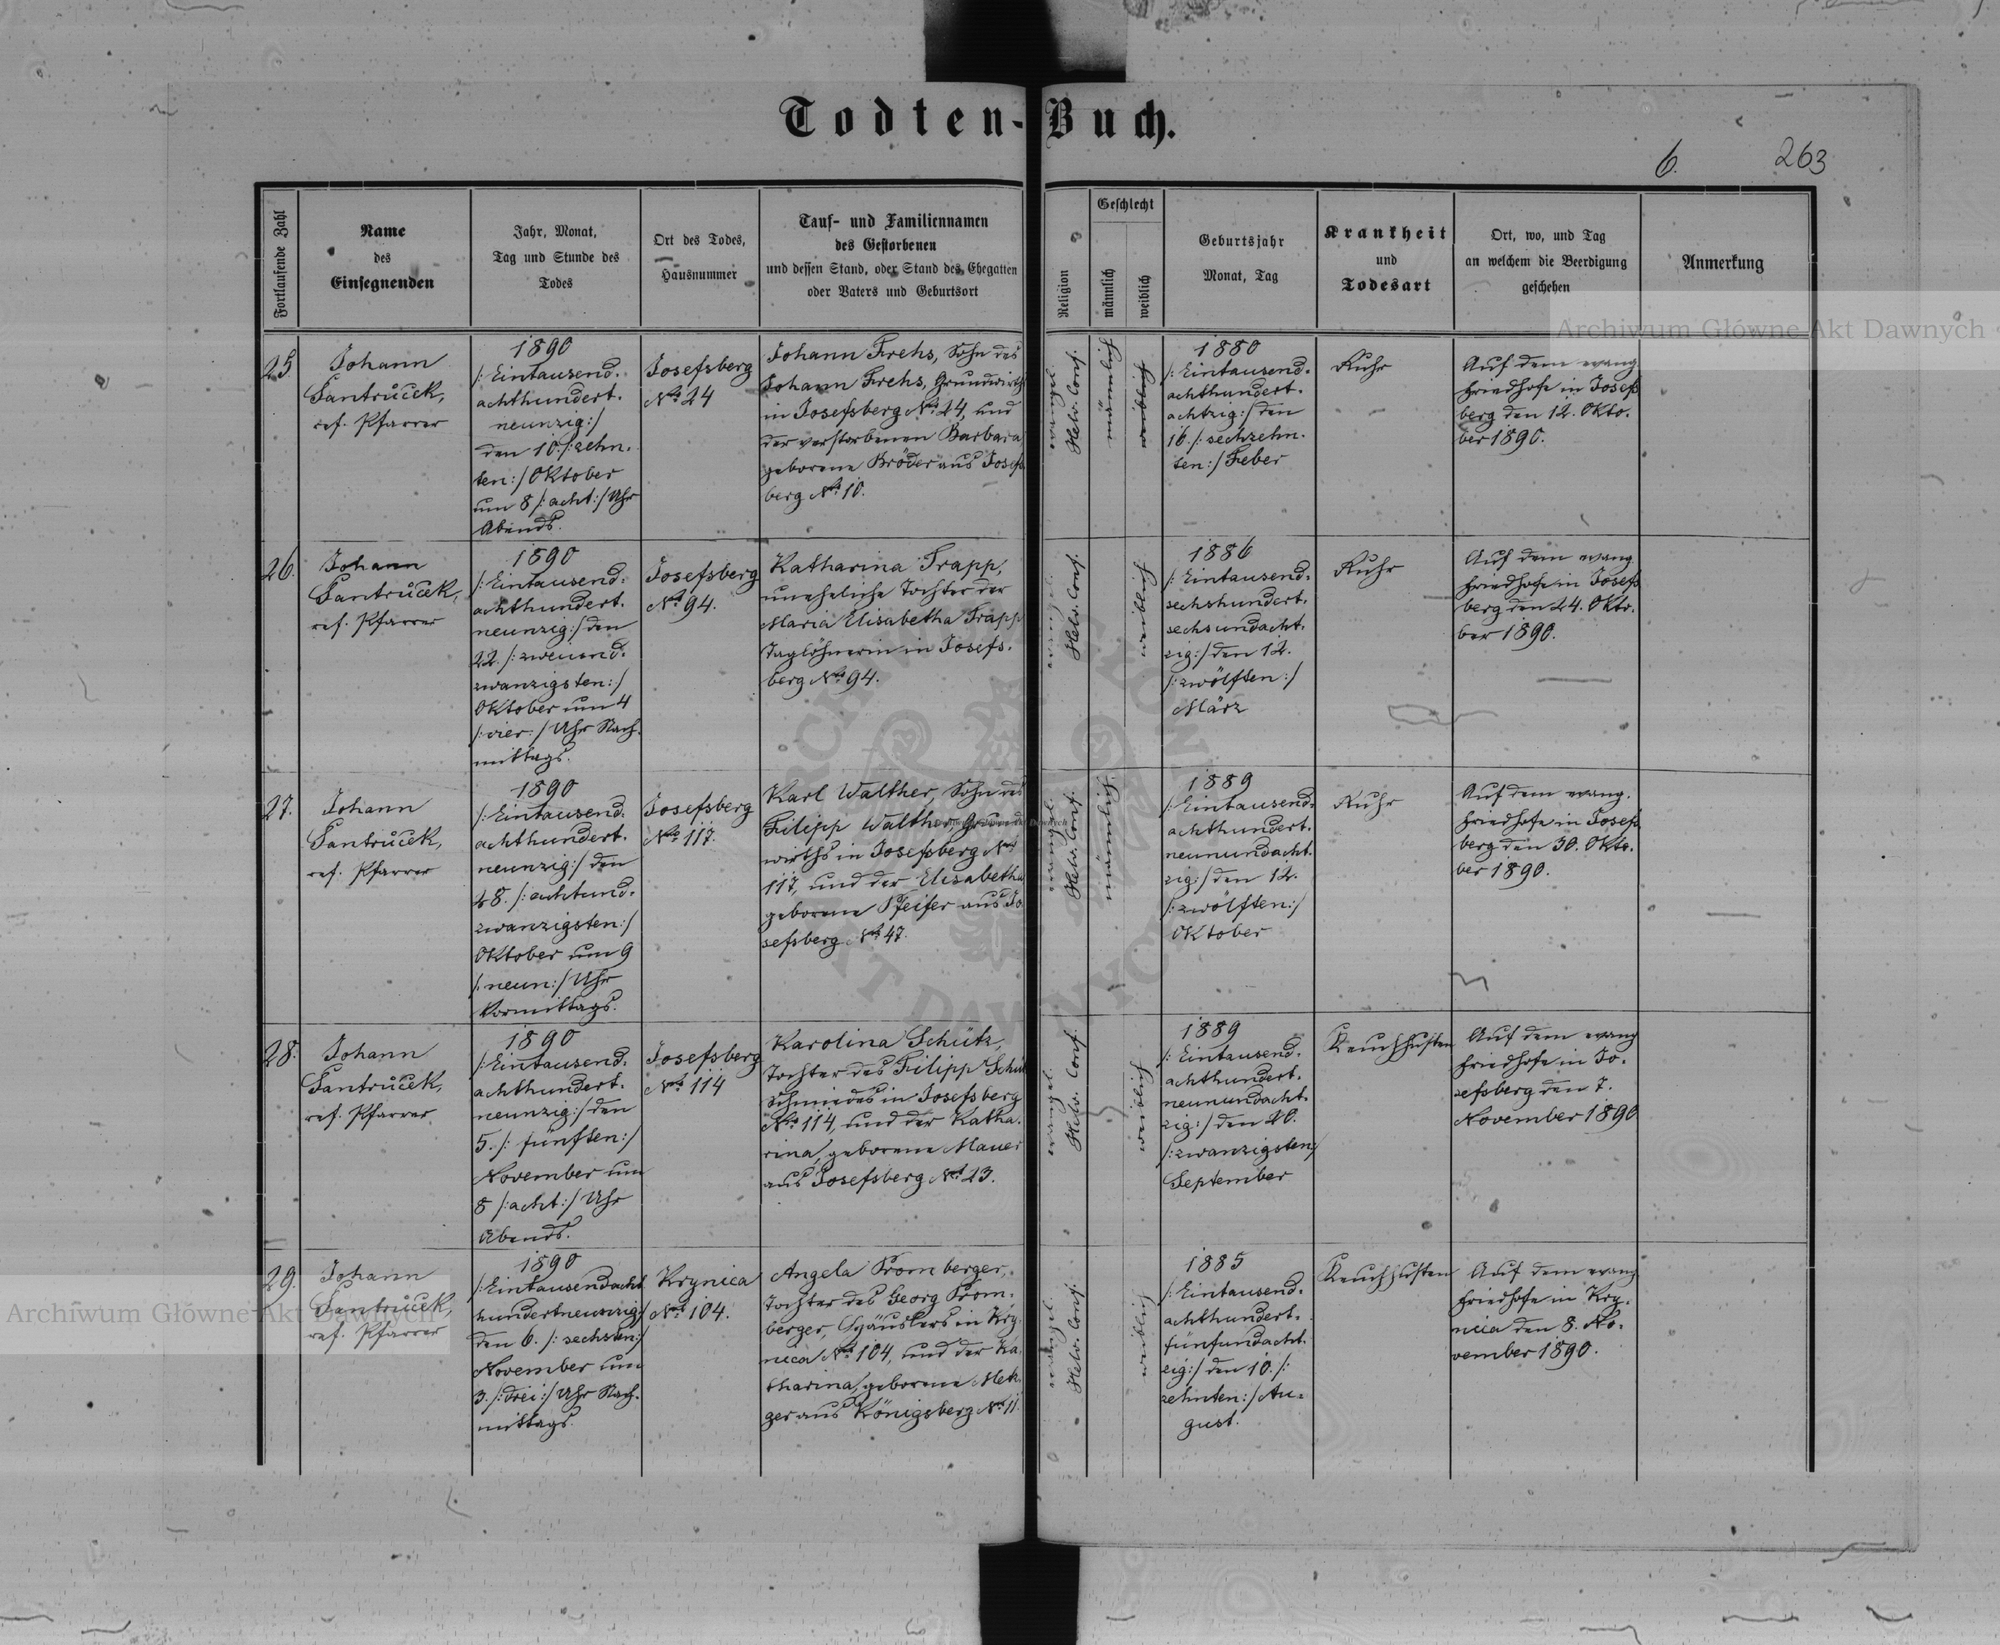 Todten-Buch.
6. 263
Fortlaufende Zahl
Name
des
Einsegnenden
Jahr, Monat,
Tag und Stunde des
Todes
Ort des Todes,
Hausnummer
Tauf- und Familiennamen
des Gestorbenen
und dessen Stand, oder Stand des Ehegatten
oder Vaters und Geburtsort
Religion
Geschlecht
männlich
weiblich
Geburtsjahr
Monat, Tag
Krankheit
und
Todesart
Ort, wo, und Tag
an welchem die Beerdigung
geschehen
Anmerkung
25.
Johann
Jantrůček,
ref. Pfarrer
1890
/: Eintausend-
achthundert-
neunzig :/
den 10. /: zehn-
ten :/ Oktober
um 8 /: acht :/ Uhr
Abends.
Josefsberg
No 24
Johann Frehs, Sohn des
Johann Frehs, Grundwirth
in Josefsberg No 24, und
der verstorbenen Barbara
geborene Bröder aus Josefs
berg No 10.
evangel.
Helv. Conf.
männlich
weiblich
1880
/: Eintausend-
achthundert-
achtzig :/ den
16. /: sechzehn-
ten :/ Feber
Ruhr
Auf dem evang
Friedhofe in Josefs
berg den 12. Okto-
ber 1890.
26.
Johann
Jantrůček,
ref. Pfarrer
1890
/: Eintausend-
achthundert-
neunzig :/ den
22. /: zweiund-
zwanzigsten :/
Oktober um 4
/: vier :/ Uhr Nach-
mittags.
Josefsberg
No 94.
Katharina Trapp,
uneheliche Tochter der
Maria Elisabetha Trapp
Taglöhnerin in Josefs-
berg No 94.
evangel.
Helv. Conf.
weiblich
1886
/: Eintausend-
sechshundert-
sechsundacht-
zig :/ den 12.
/: zwölften :/
März
Ruhr
Auf dem evang
Friedhofe in Josefs
berg den 24. Okto-
ber 1890.
27.
Johann
Jantrůček,
ref. Pfarrer
1890
/: Eintausend-
achthundert-
neunzig :/ den
28. /: achtund-
zwanzigsten :/
Oktober um 9
/: neun :/ Uhr
Vormittags.
Josefsberg
No 117.
Karl Walther, Sohn des
Filipp Walther, Grund
wirths in Josefsberg No
117, und der Elisabetha
geborene Pfeifer aus Jo
sefsberg No 47.
evangel.
Helv. Conf.
männlich
1889
/: Eintausend-
achthundert-
neunundacht-
zig :/ den 12.
/: zwölften :/
Oktober
Ruhr
Auf dem evang.
Friedhofe in Josefs
berg den 30. Okto-
ber 1890.
28.
Johann
Jantrůček,
ref. Pfarrer
1890
/: Eintausend-
achthundert-
neunzig :/ den
5. /: fünften :/
November um
8 /: acht :/ Uhr
Abends.
Josefsberg
No 114
Karolina Schütz,
Tochter des Filipp Schütz
Schmiedes in Josefsberg
No 114, und der Katha-
rina, geborene Mauer
aus Josefsberg No 23.
evangel.
Helv. Conf.
weiblich
1889
/: Eintausend-
achthundert-
neunundacht-
zig :/ den 20.
/: zwanzigsten :/
September
Keuchhusten
Auf dem evang
Friedhofe in Jo-
sefsberg den 7.
November 1890
29.
Johann
Jantrůček,
ref. Pfarrer
1890
/: Eintausendacht
hundertneunzig :/
den 6. /: sechsten :/
November um
3. /: drei :/ Uhr Nach-
mittags.
Krynica
No 104.
Angela Promberger,
Tochter des Georg Prom-
berger, Häuslers in Kry-
nica No 104, und der Ka-
tharina, geborene Metz-
ger aus Königsberg No 11.
evangel.
Helv. Conf.
weiblich
1885
/: Eintausend-
achthundert-
fünfundacht-
zig :/ den 10. /:
zehnten :/ Au-
gust.
Keuchhusten
Auf dem evang
Friedhofe in Kry-
nica den 8. No-
vember 1890.
Archiwum Główne Akt Dawnych
Archiwum Główne Akt Dawnych
ARCHIWUM GŁÓWNE AKT DAWNYCH